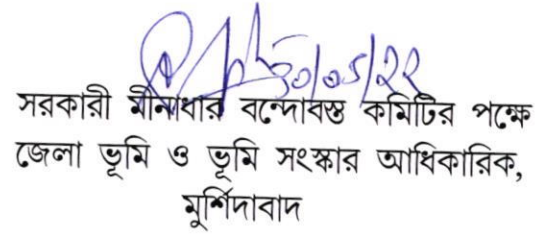 ৩০/০৫/২২
সরকারী মীনাধার বন্দোবস্ত কমিটির পক্ষে
জেলা ভূমি ও ভূমি সংস্কার আধিকারিক,
মুর্শিদাবাদ